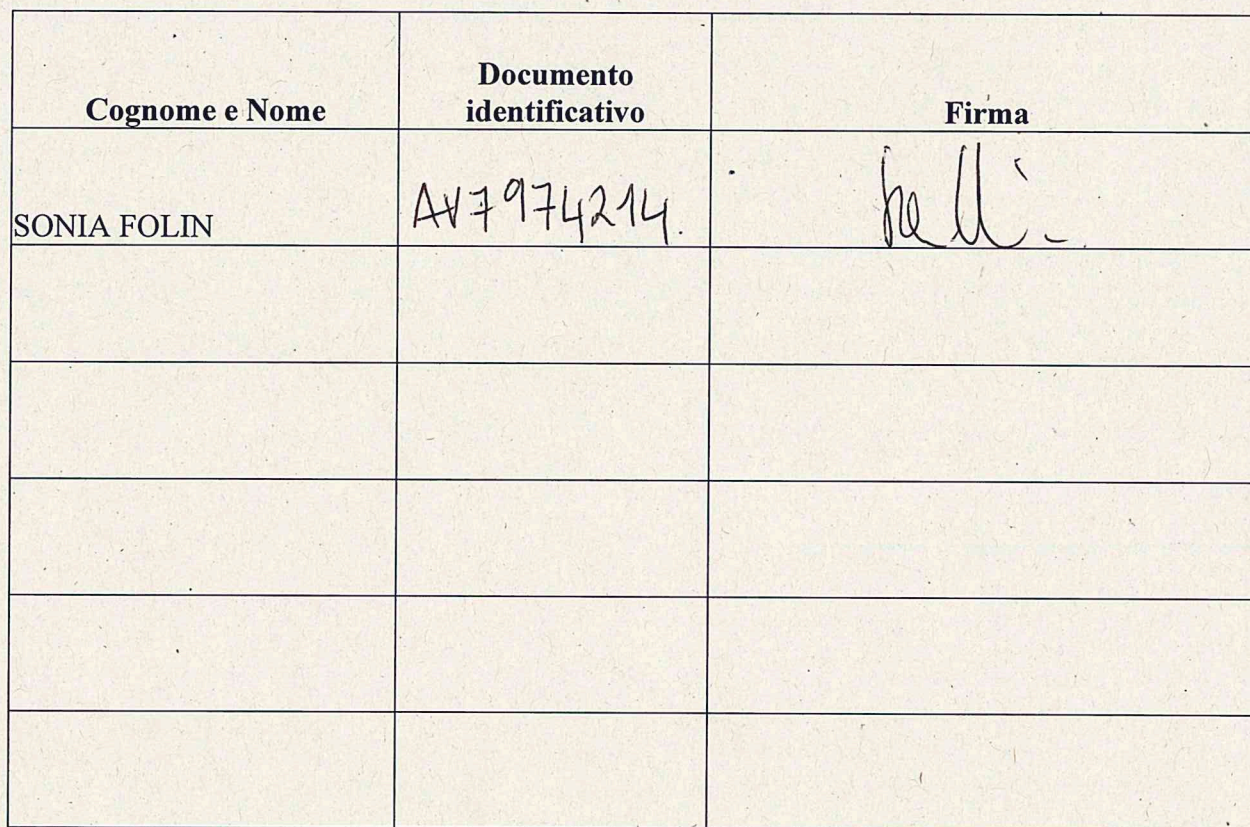 Cognome e Nome
Documento
identificativo
Firma
SONIA FOLIN
AV7974214.